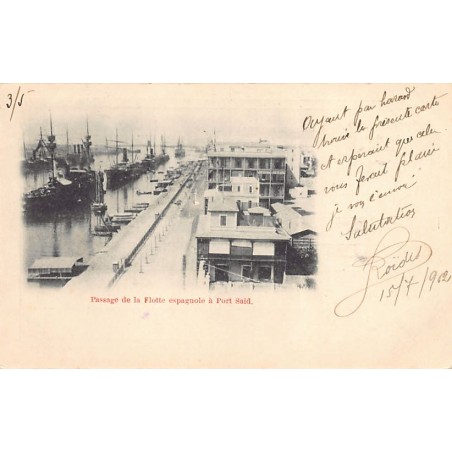 3/5
Ayant par hasard
trouvé la présente carte
et espérant que cela
vous ferait plaisir
je vous l'envoi
Salutations
15/7/902
Passage de la Flotte espagnole à Port Saïd.